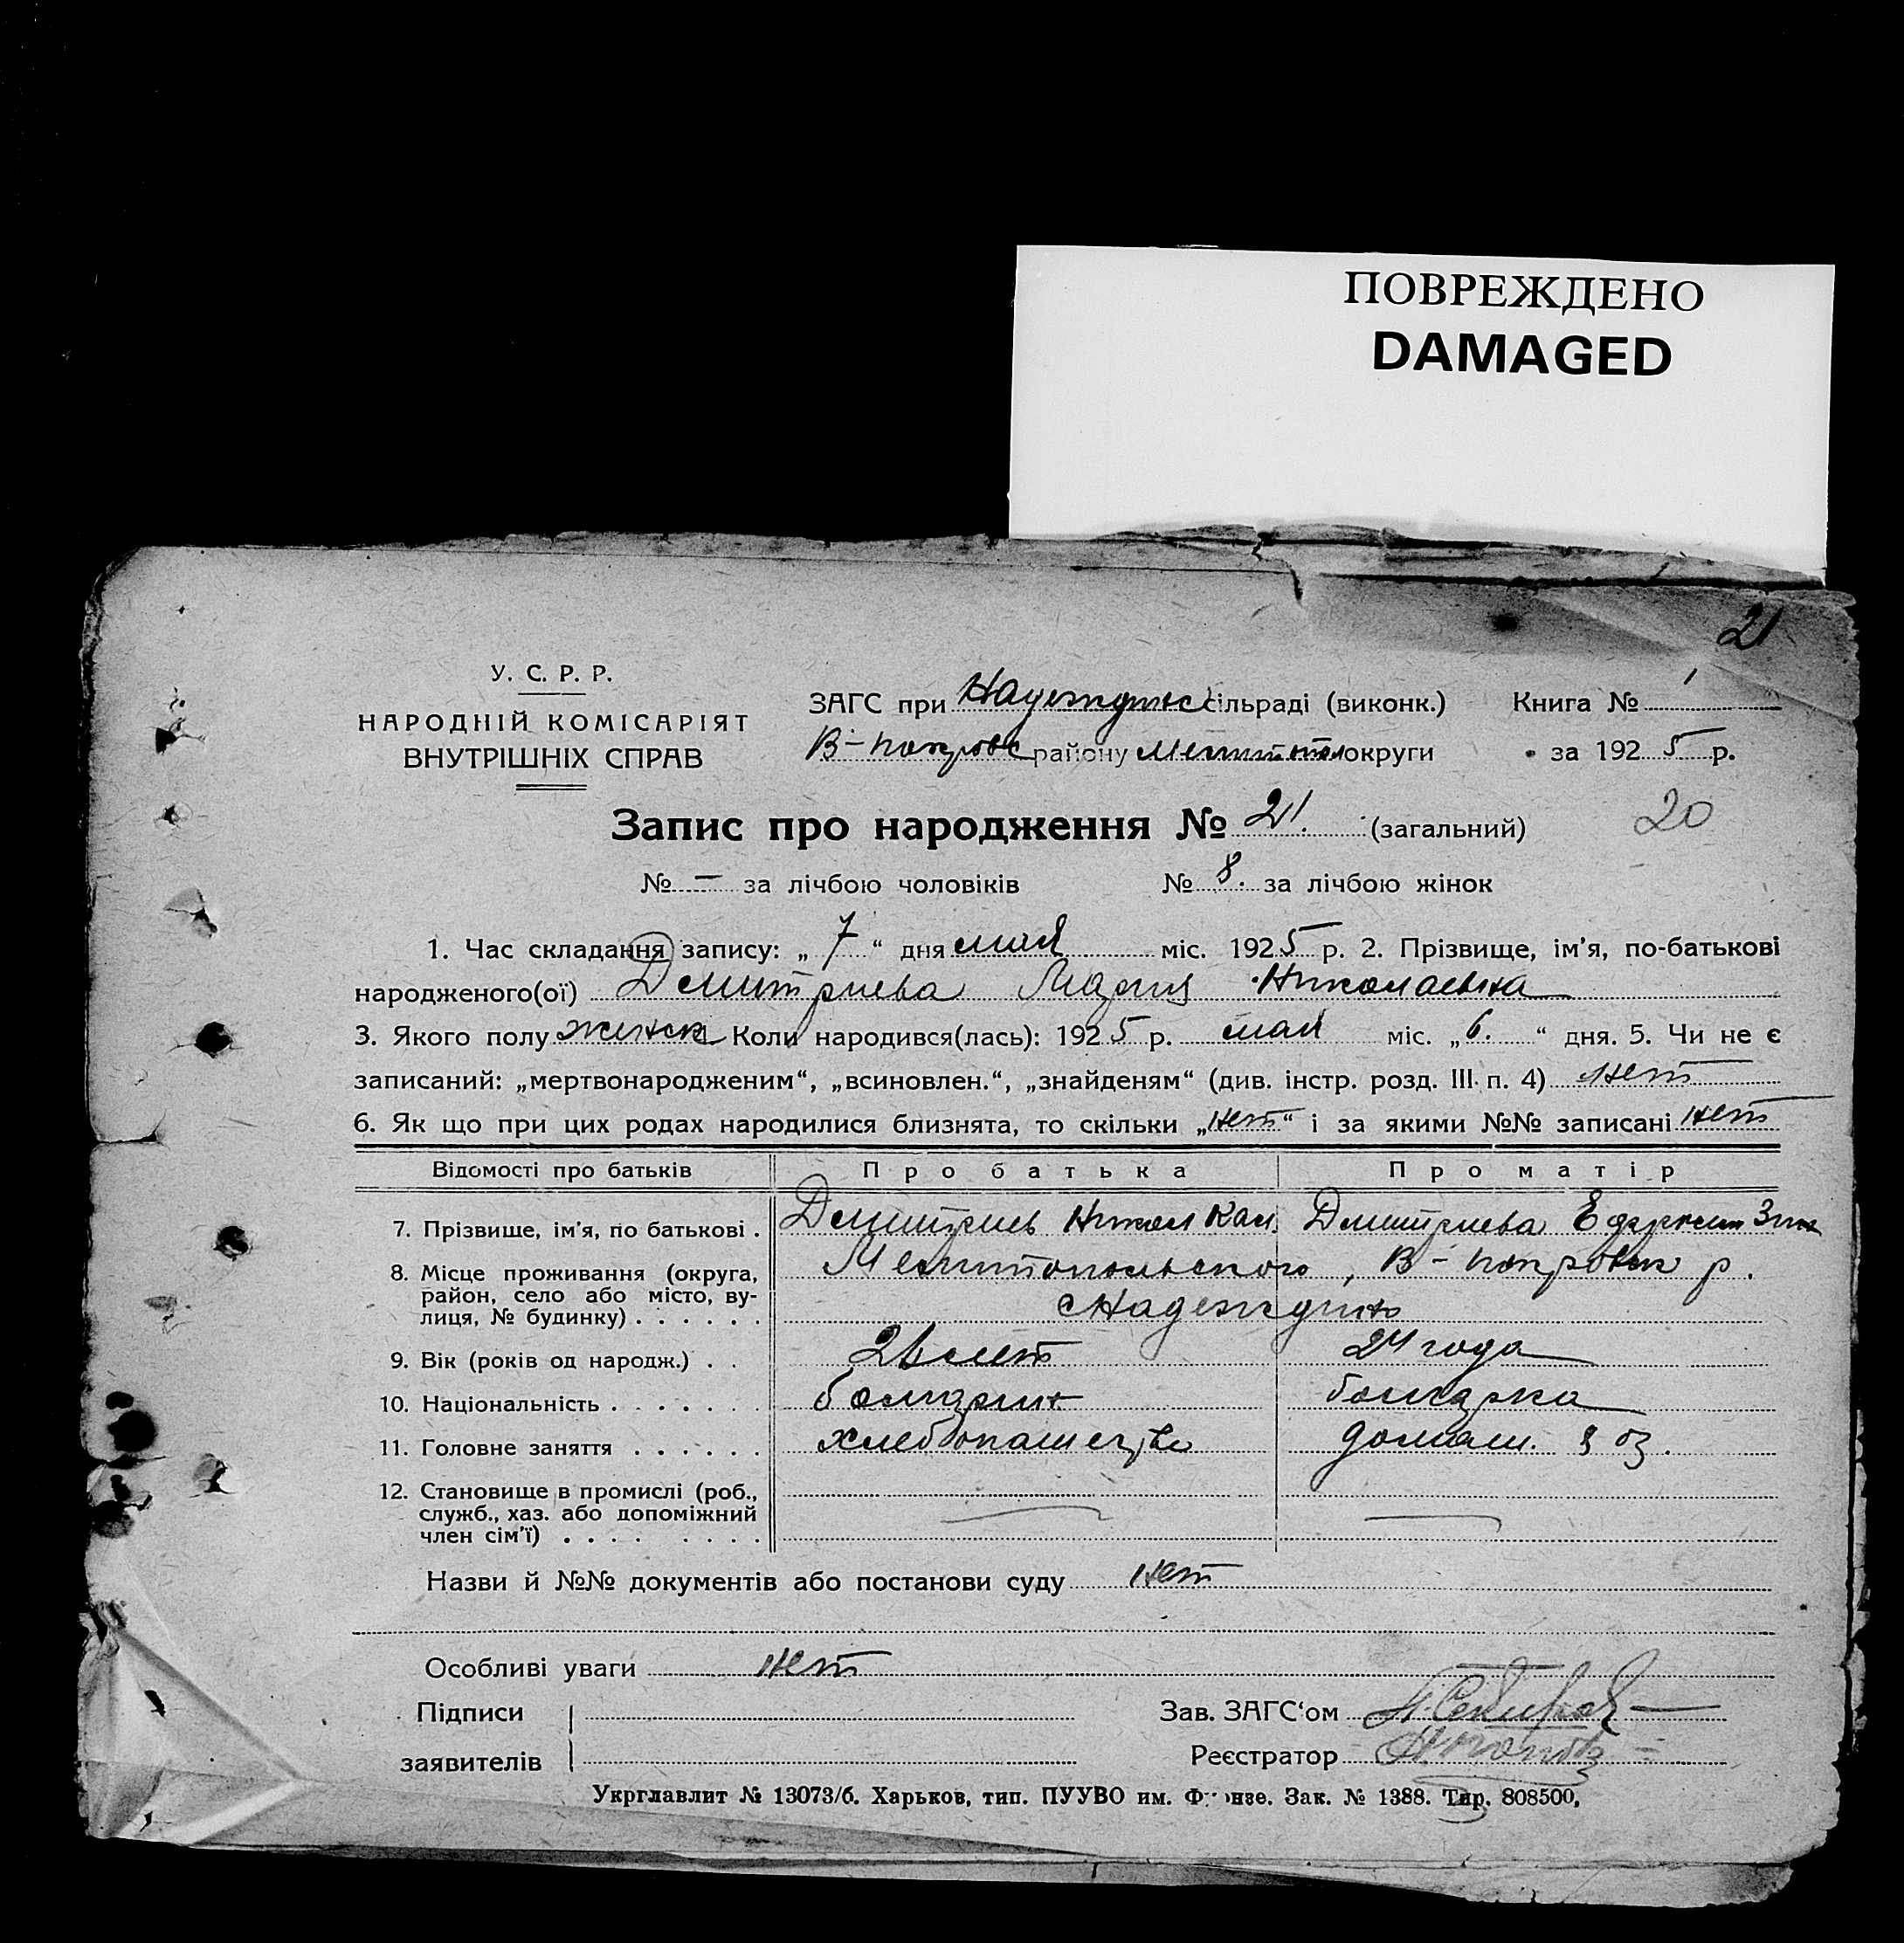 ПОВРЕЖДЕНО
DAMAGED
21
У. С. Р. Р.
НАРОДНІЙ КОМІСАРІЯТ
ВНУТРІШНІХ СПРАВ
ЗАГС при Надеждинс сільраді (виконк.) Книга № 1
В-покровс району Мелитопол округи за 1925 р.
Запис про народження № 21. (загальний) 20
№ – за лічбою чоловіків № 8. за лічбою жінок
1. Час складання запису: „7“ дня мая міс. 1925 р. 2. Прізвище, ім'я, по-батькові
народженого(ої) Дмитриева Мария Николаевна
3. Якого полу женск Коли народився(лась): 1925 р. мая міс. „6.“ дня. 5. Чи не є
записаний: „мертвонародженим“, „всиновлен.“, „знайденям“ (див. інстр. розд. III п. 4) нет
6. Як що при цих родах народилися близнята, то скільки „нет“ і за якими №№ записані нет
Відомості про батьків Про батька Про матір
7. Прізвище, ім'я, по батькові . Дмитриев Никол Дмитриева
8. Місце проживання (округа, Мелитопольского, В-покровск р.
район, село або місто, ву- Надеждино
лиця, № будинку) . . . . . .
9. Вік (років од народж.) . . 26 лет 24 года
10. Національність . . . . . . . болгарин болгарка
11. Головне заняття . . . . . . хлебопашество домаш. хоз.
12. Становище в промислі (роб.,
служб., хаз. або допоміжний
член сім'ї) . . . . . . . .
Назви й №№ документів або постанови суду нет
Особливі уваги нет
Підписи Зав. ЗАГС'ом
заявителів Реєстратор
Укрглавлит № 13073/б. Харьков, тип. ПУУВО им. Фрунзе. Зак. № 1388. Тир. 808500,